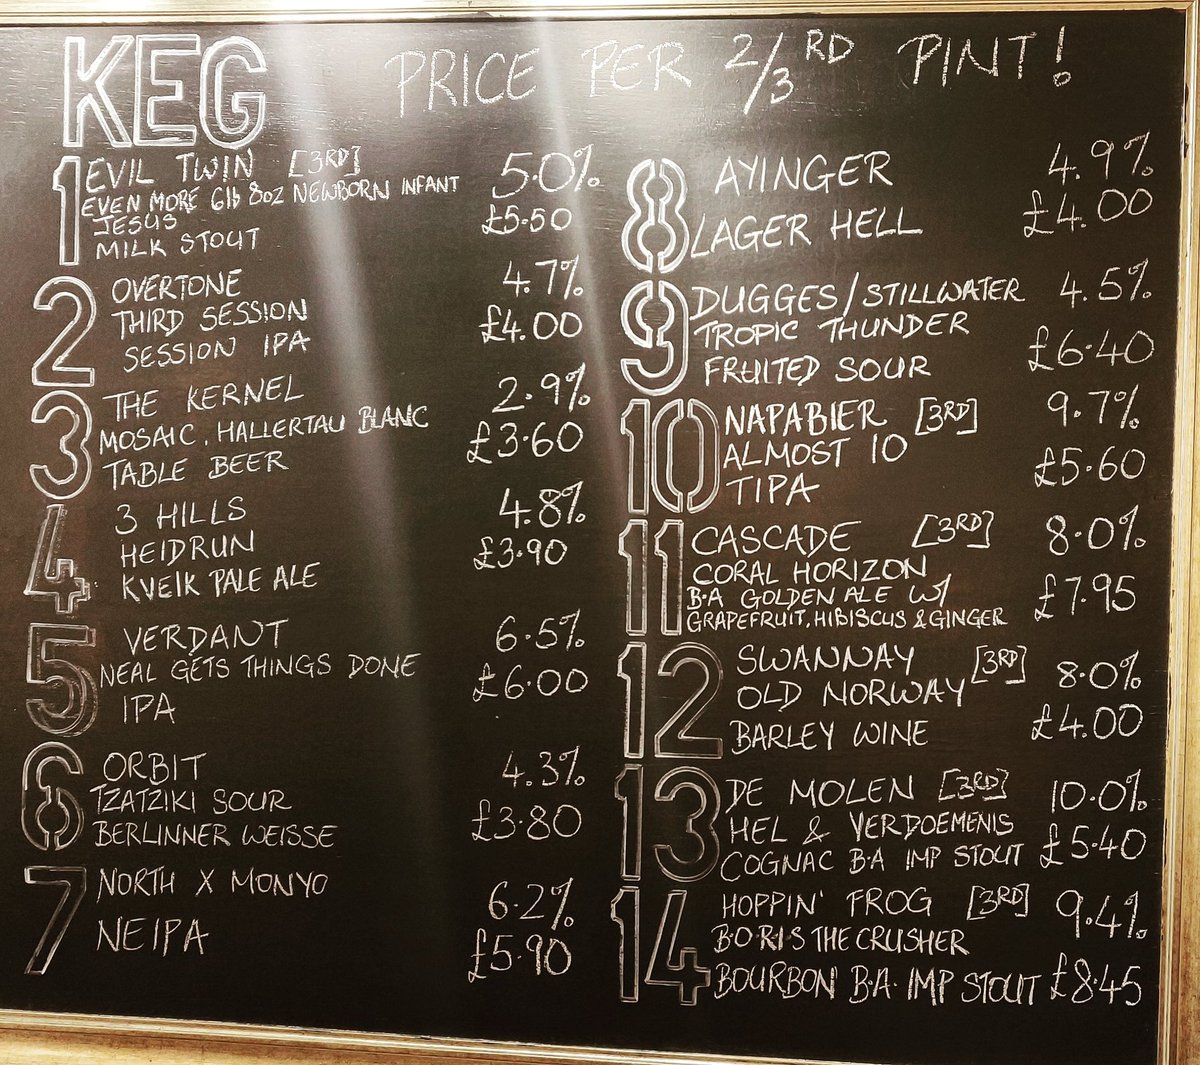 KEG PRICE PER 2/3RD PINT!
1 EVIL TWIN [3RD] 5.0%
EVEN MORE 6lb 8oz NEWBORN INFANT
JESUS £5.50
MILK STOUT
2 OVERTONE 4.7%
THIRD SESSION £4.00
SESSION IPA
3 THE KERNEL 2.9%
MOSAIC, HALLERTAU BLANC £3.60
TABLE BEER
4 3 HILLS 4.8%
HEIDRUN £3.90
KVEIK PALE ALE
5 VERDANT 6.5%
NEAL GETS THINGS DONE £6.00
IPA
6 ORBIT 4.3%
TZATZIKI SOUR £3.80
BERLINNER WEISSE
7 NORTH X MONYO 6.2%
NEIPA £5.90
8 AYINGER 4.9%
LAGER HELL £4.00
9 DUGGES/STILLWATER 4.5%
TROPIC THUNDER £6.40
FRUITED SOUR
10 NAPABIER [3RD] 9.7%
ALMOST 10 £5.60
TIPA
11 CASCADE [3RD] 8.0%
CORAL HORIZON £7.95
B.A GOLDEN ALE W/
GRAPEFRUIT, HIBISCUS & GINGER
12 SWANNAY [3RD] 8.0%
OLD NORWAY £4.00
BARLEY WINE
13 DE MOLEN [3RD] 10.0%
HEL & VERDOEMENIS £5.40
COGNAC B.A IMP STOUT
14 HOPPIN' FROG [3RD] 9.4%
B.O.R.I.S THE CRUSHER
BOURBON B.A. IMP STOUT £8.45